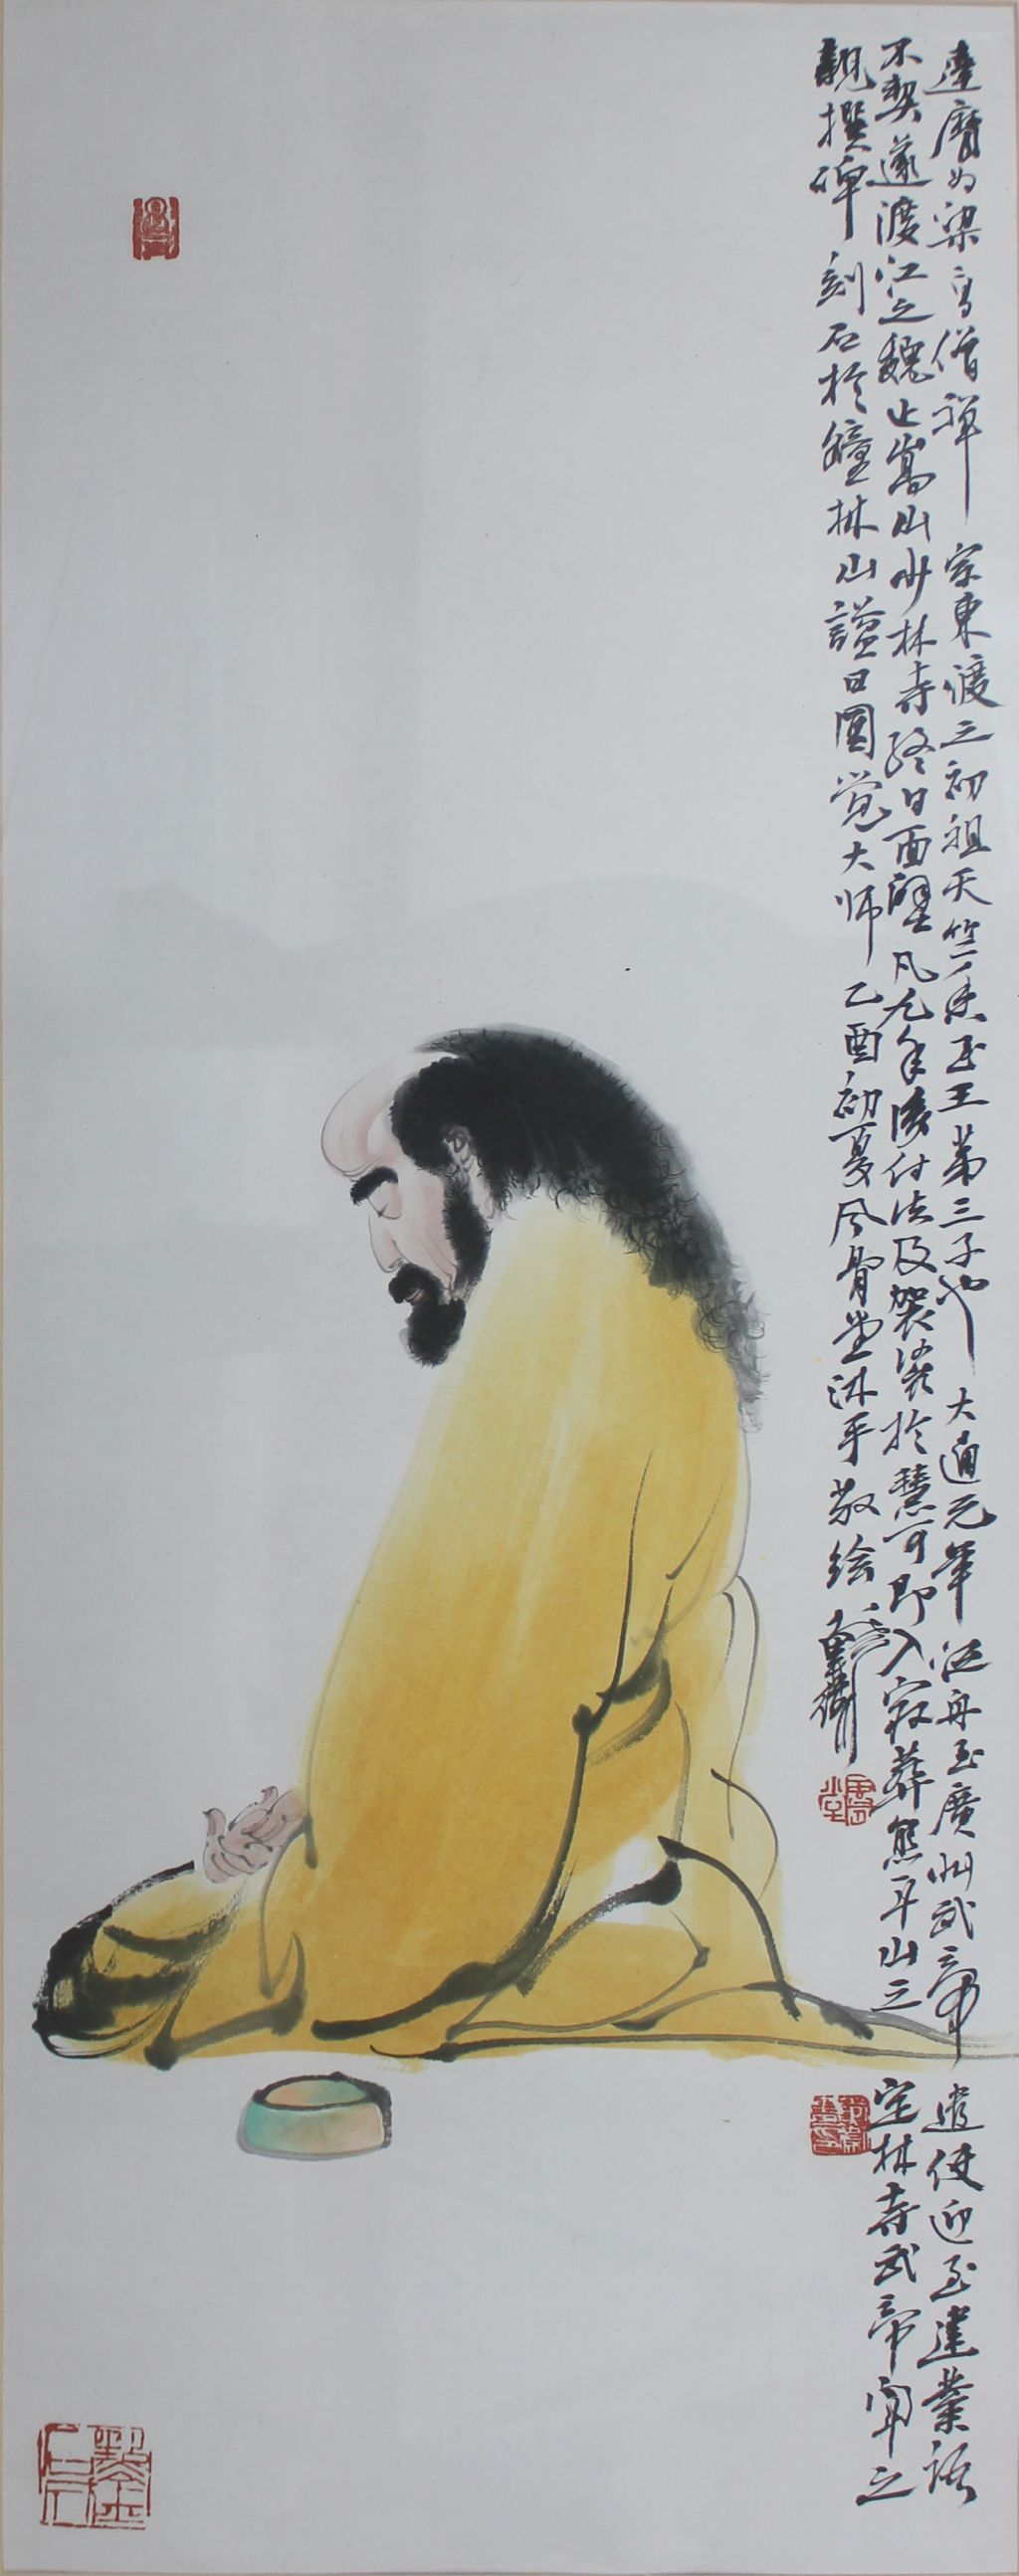 達磨為梁高僧禪宗東渡之初祖天竺香至王第三子也大通元年泛舟至廣州武帝遣使迎至建業語
不契遂渡江之魏止嵩山少林寺終日面壁凡九年後付法及袈裟於慧可即入寂葬熊耳山之定林寺武帝聞之
親撰碑刻石於鐘林山謚曰圓覺大師乙酉初夏風骨堂沐手敬绘